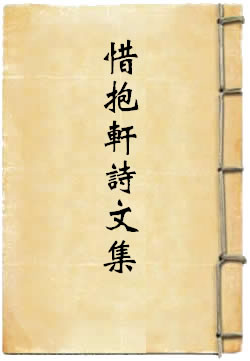 惜抱軒詩文集